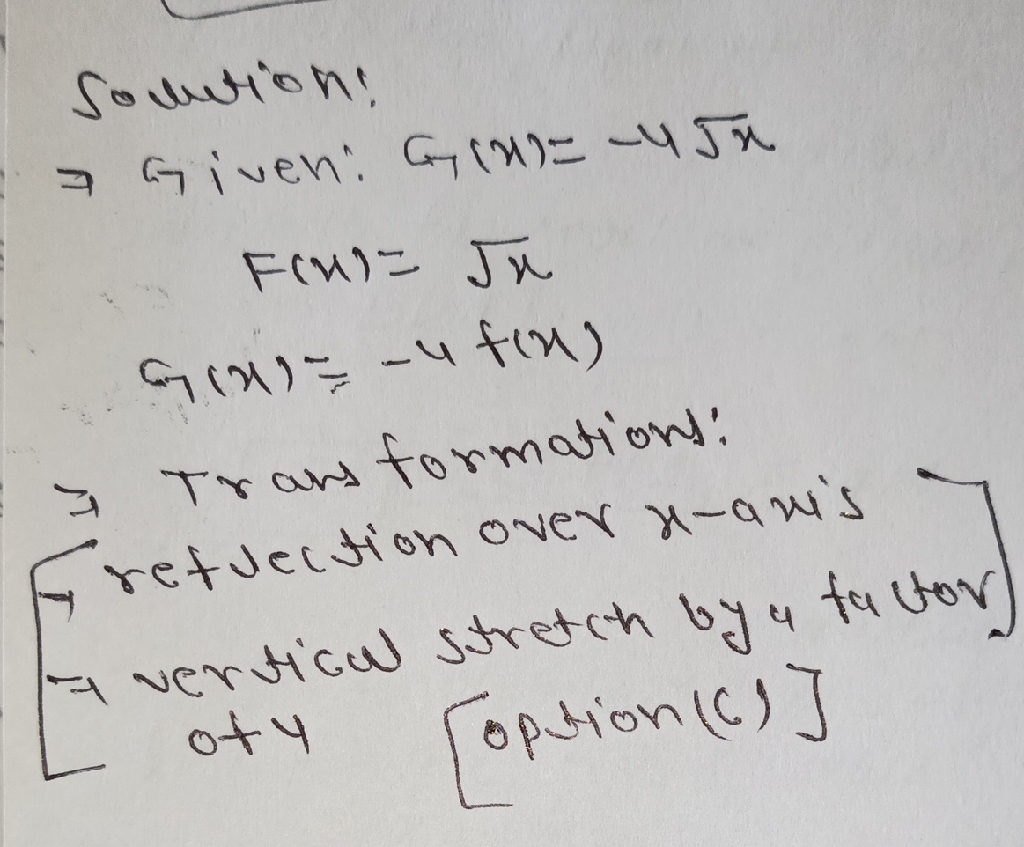 Solution:
⇒ Given: G(x)= -4√x
F(x)= √x
G(x)= -4 f(x)
⇒ Transformations:
→ reflection over x-axis
→ vertical stretch by a factor
of 4 [option (C)]